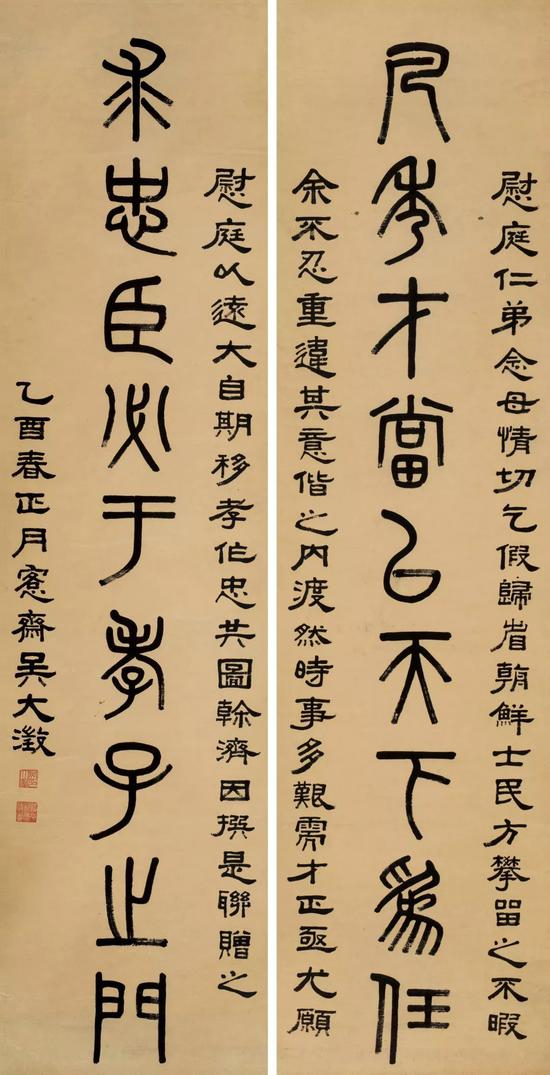 慰庭仁弟念母情切乞假歸省朝鮮士民方攀畱之不暇
凡秀才當㠯天下爲任
余不忍重違其意偕之內渡然時事多艱需才正亟尤願
慰庭以遠大自期移孝作忠共圖榦濟因撰是聯贈之
求忠臣必于孝子之門
乙酉春正月愙齋吳大澂